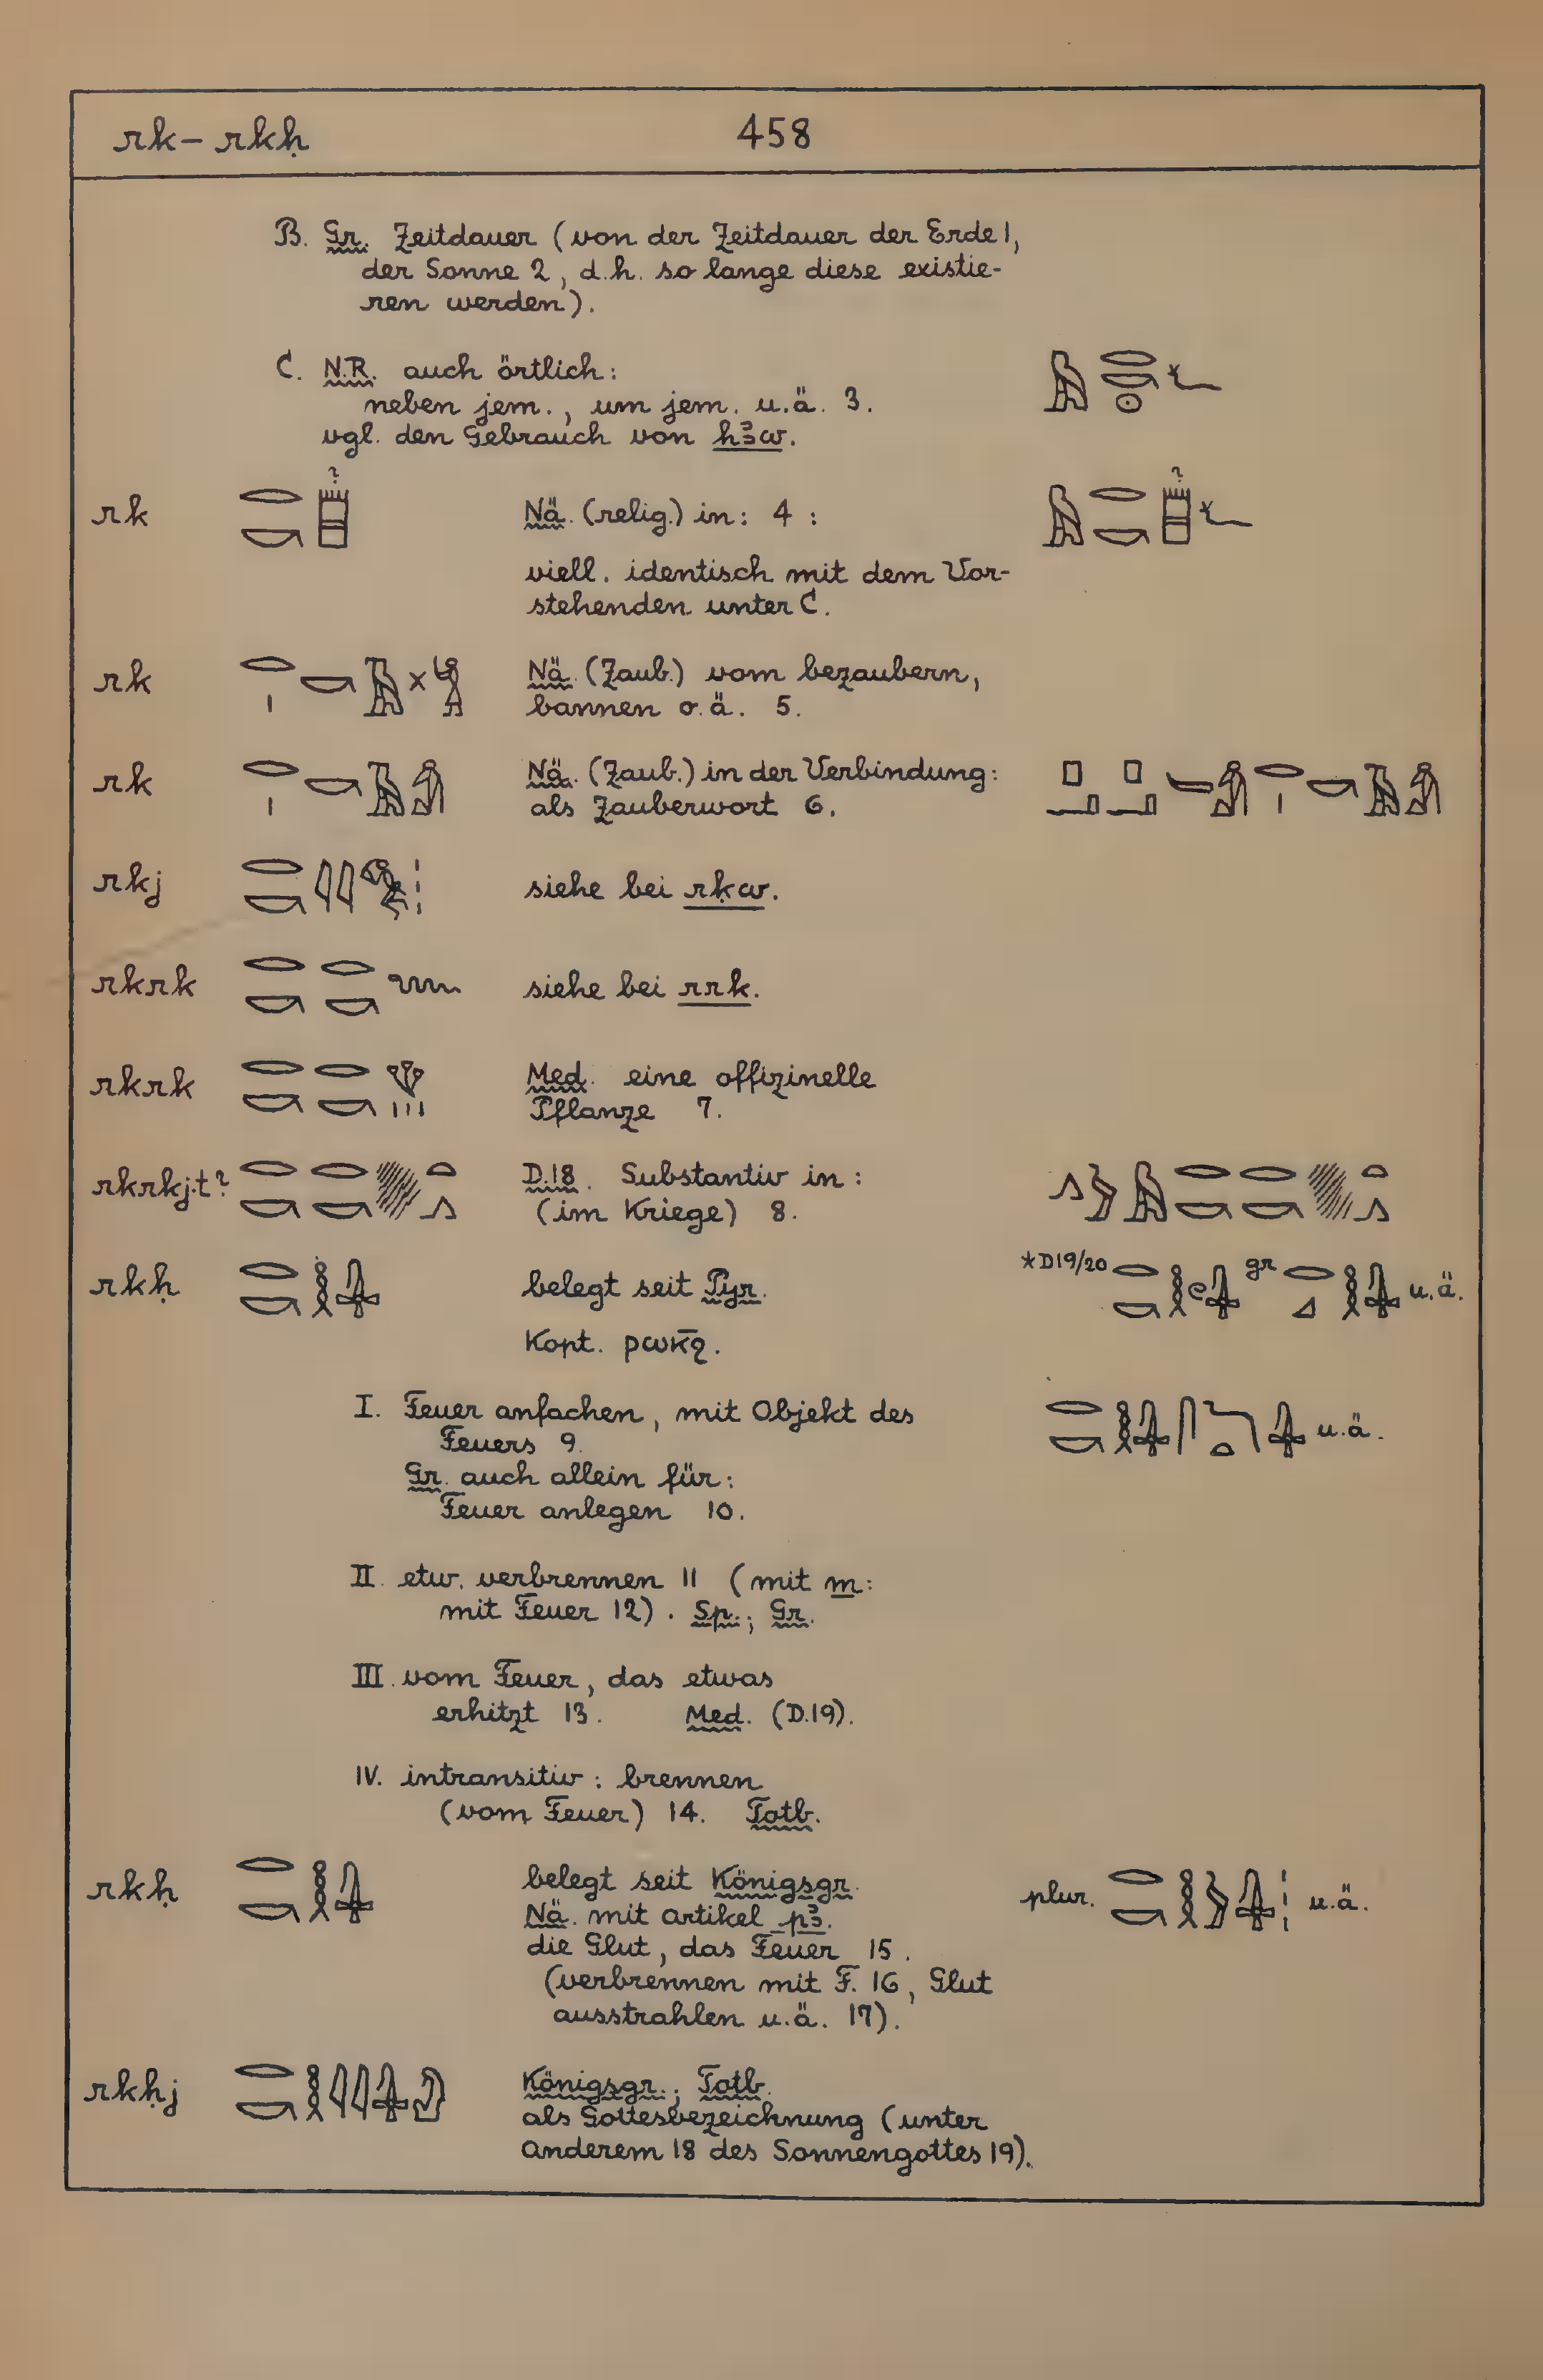 rk – rkḥ 458
B. Gr. Zeitdauer (von der Zeitdauer der Erde 1,
der Sonne 2, d.h. so lange diese existie-
ren werden).
C. N.R. auch örtlich:
neben jem., um jem. u.ä. 3.
vgl. den Gebrauch von hꜣw.
rk ? Nä. (relig.) in: 4 : ?
viell. identisch mit dem Vor-
stehenden unter C.
rk Nä. (Zaub.) vom bezaubern,
bannen o.ä. 5.
rk Nä. (Zaub.) in der Verbindung:
als Zauberwort 6.
rkj siehe bei rḳw.
rkrk siehe bei rrk.
rkrk Med. eine offizinelle
Pflanze 7.
rkrkj.t? D.18. Substantiv in:
(im Kriege) 8.
rkḥ belegt seit Pyr. *D19/20 gr u.ä.
Kopt. ⲣⲱⲕ̄ϩ.
I. Feuer anfachen, mit Objekt des u.ä.
Feuers 9.
Gr. auch allein für:
Feuer anlegen 10.
II. etw. verbrennen 11 (mit m:
mit Feuer 12). Sp.; Gr.
III. vom Feuer, das etwas
erhitzt 13. Med. (D.19).
IV. intransitiv: brennen
(vom Feuer) 14. Totb.
rkḥ belegt seit Königsgr. plur. u.ä.
Nä. mit Artikel pꜣ.
die Glut, das Feuer 15.
(verbrennen mit F. 16, Glut
ausstrahlen u.ä. 17).
rkḥj Königsgr.; Totb.
als Gottesbezeichnung (unter
anderem 18 des Sonnengottes 19).